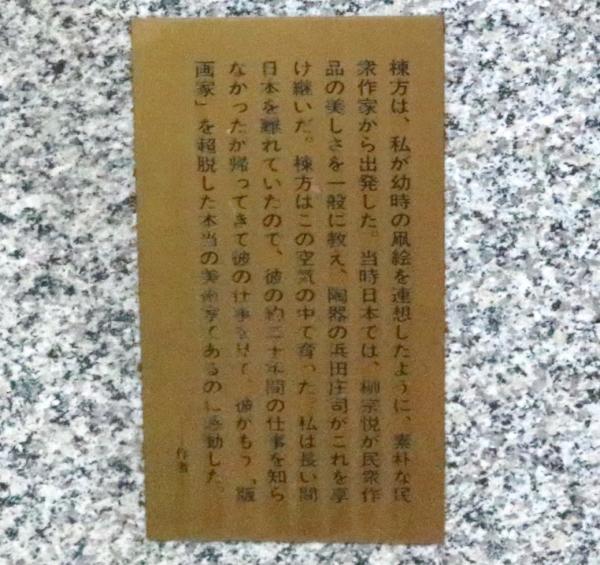 棟方は、私が幼時の凧絵を連想したように、素朴な民
衆作家から出発した。当時日本では、柳宗悦が民衆作
品の美しさを一般に教え、陶器の浜田庄司がこれを享
け継いだ。棟方はこの空気の中で育った。私は長い間
日本を離れていたので、彼の約二十年間の仕事を知ら
なかったが帰ってきて彼の仕事を見て、彼がもう「版
画家」を超脱した本当の美術家であるのに感動した。
―作者